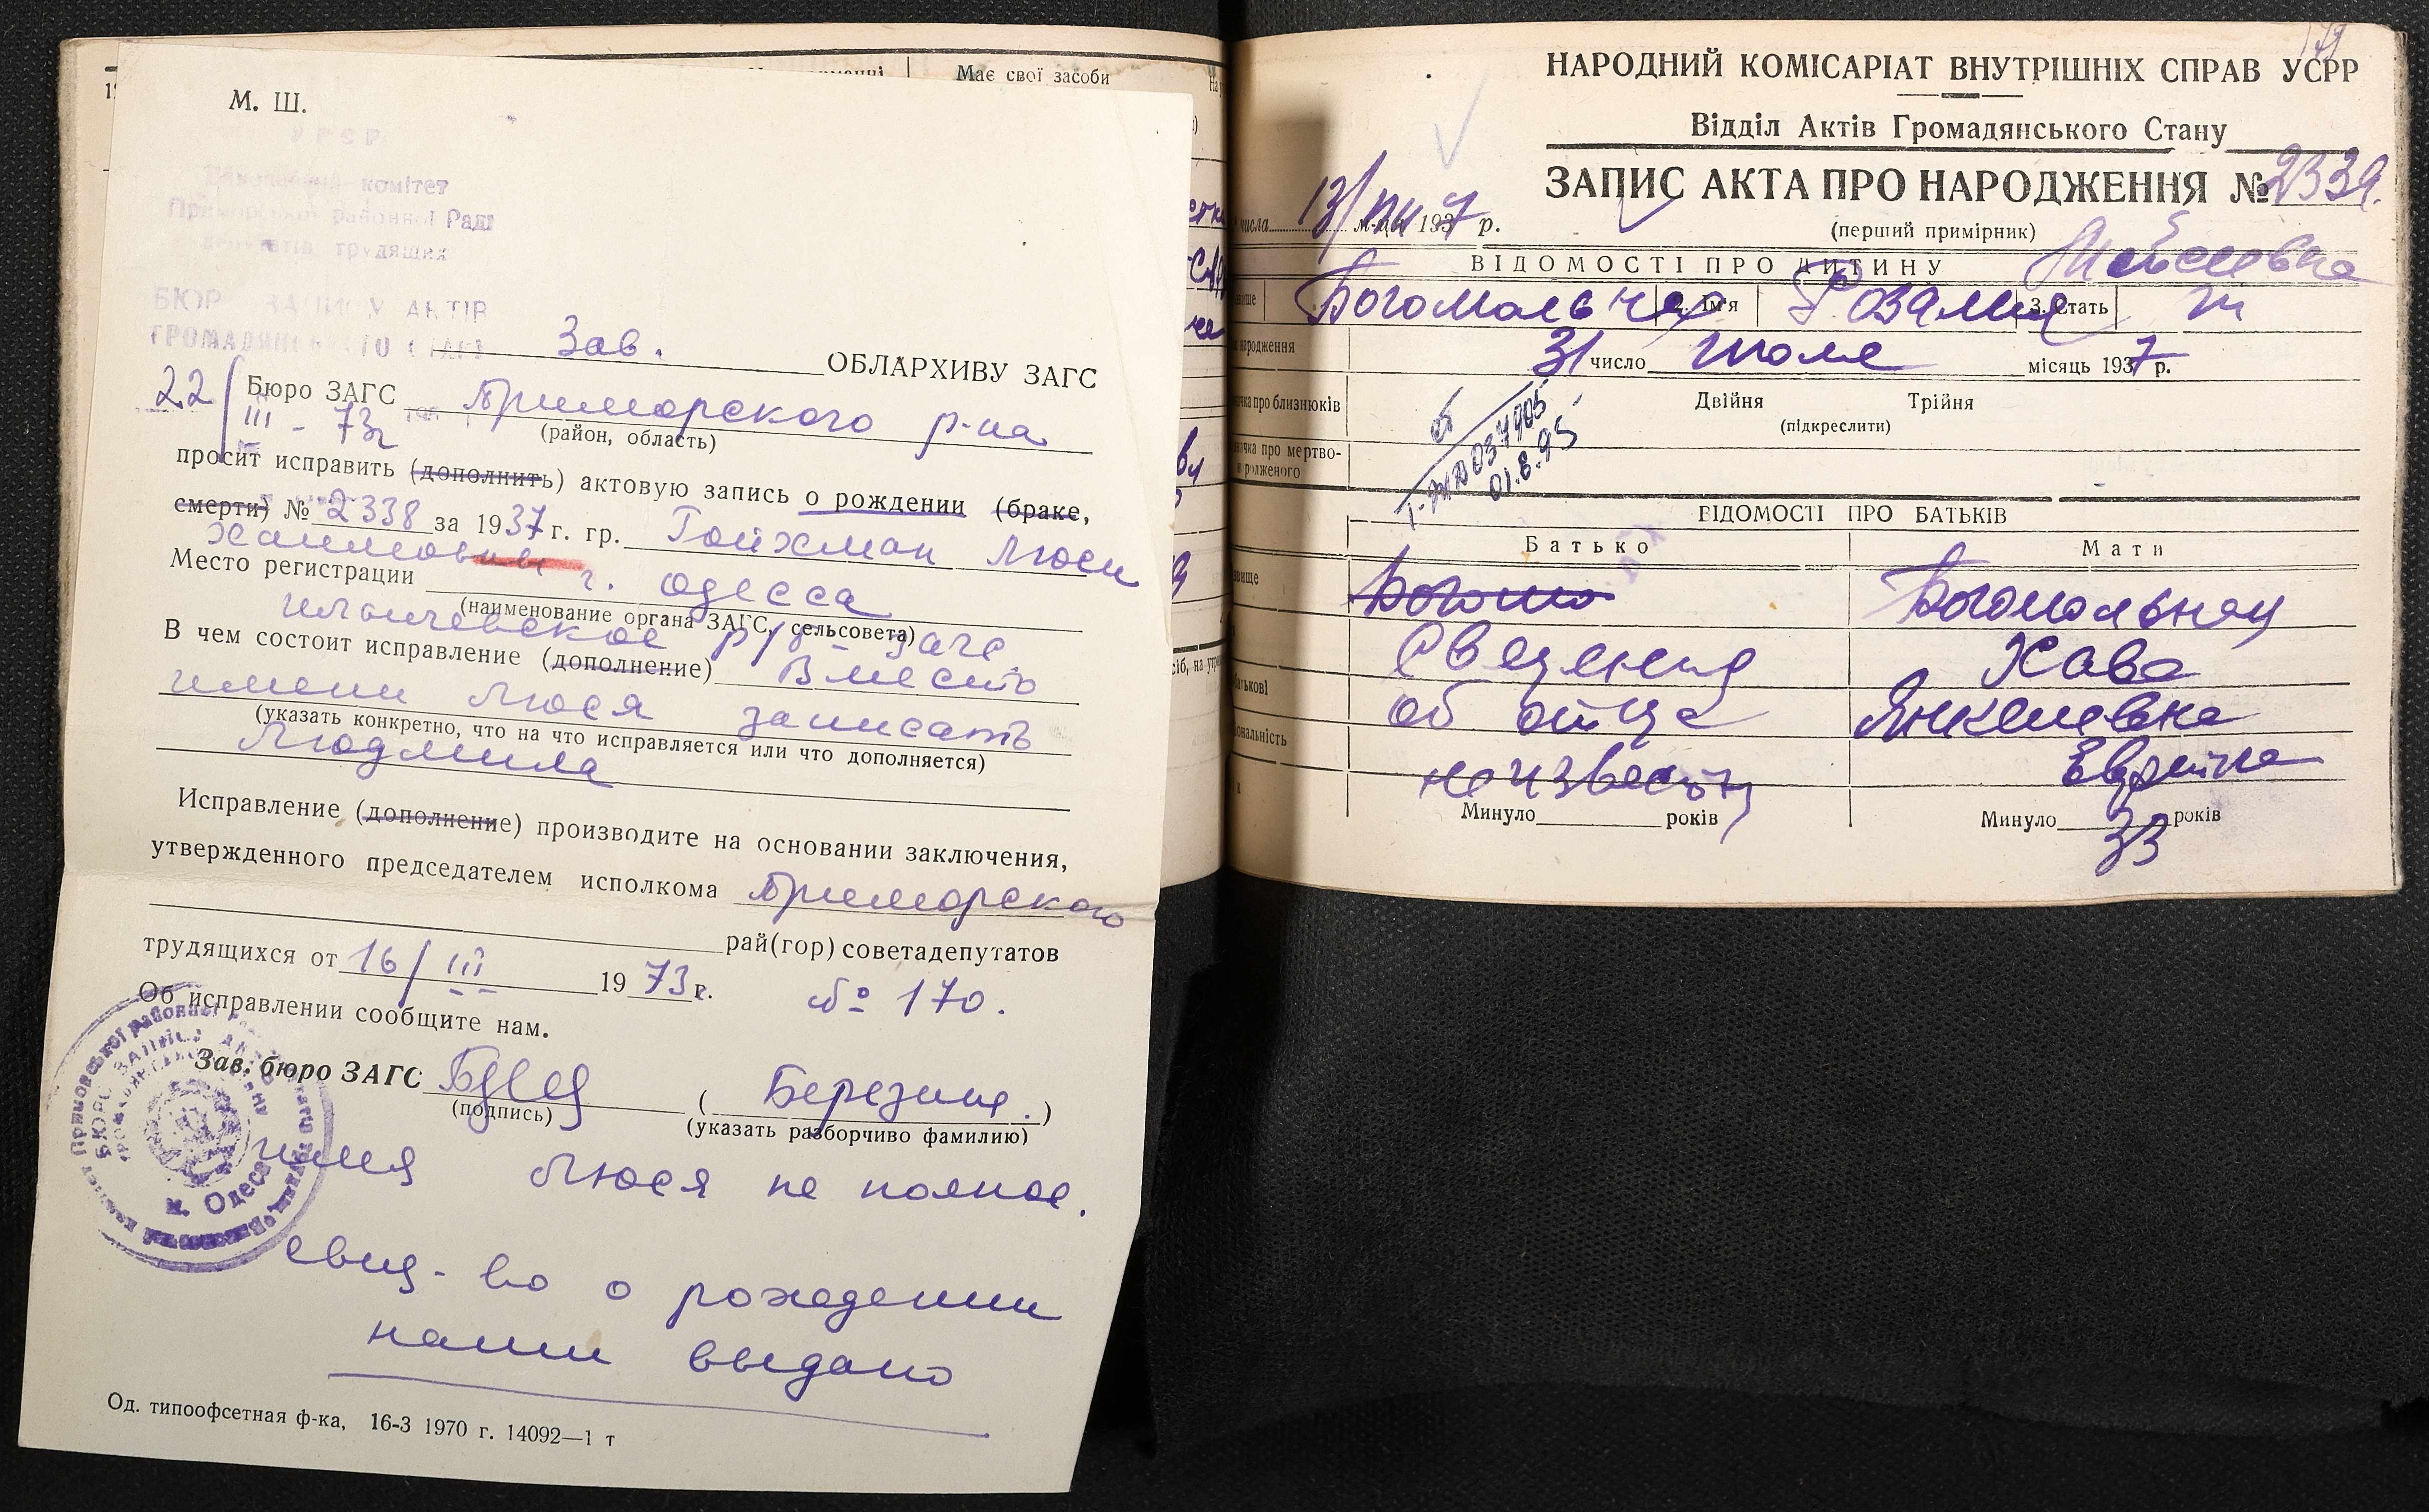 М. Ш.
комітет
районної Ради
трудящих
БЮРО ЗАПИСУ АКТІВ
ГРОМАДЯНСЬКОГО СТАНУ
Зав. ОБЛАРХИВУ ЗАГС
22/III - 73г
Бюро ЗАГС Приморского р-на
(район, область)
просит исправить (дополнить) актовую запись о рождении (браке,
смерти) № 2338 за 1937 г. гр. Гойхман Люси
Хаимовны
Место регистрации г. Одесса
(наименование органа ЗАГС, сельсовета)
Ильичевское р/б загс
В чем состоит исправление (дополнение) Вместо
имени Люся записать
(указать конкретно, что на что исправляется или что дополняется)
Людмила
Исправление (дополнение) производите на основании заключения,
утвержденного председателем исполкома Приморского
рай(гор) советадепутатов
трудящихся от 16/III 1973г. № 170.
Об исправлении сообщите нам.
Зав. бюро ЗАГС (Березина.)
(подпись) (указать разборчиво фамилию)
м. Одеса
имя Люся не полное.
свид-во о рождении
нами выдано
Од. типоофсетная ф-ка, 16-3 1970 г. 14092—1 т
Має свої засоби
НАРОДНИЙ КОМІСАРІАТ ВНУТРІШНІХ СПРАВ УСРР
Відділ Актів Громадянського Стану
ЗАПИС АКТА ПРО НАРОДЖЕННЯ № 2339.
числа 13/VIII м-ця 1937 р.
(перший примірник)
ВІДОМОСТІ ПРО ДИТИНУ
Богомольная 2. Ім'я Розалия 3. Стать ж
народження 31 число июля місяць 1937 р.
про близнюків Двійня Трійня
(підкреслити)
про мертво-
родженого
037905
01.8.95
ВІДОМОСТІ ПРО БАТЬКІВ
Батько Мати
Богомо Богомольная
Сведения Хава
об отце Янкелевна
неизвестны Еврейка
Минуло років Минуло 33 років